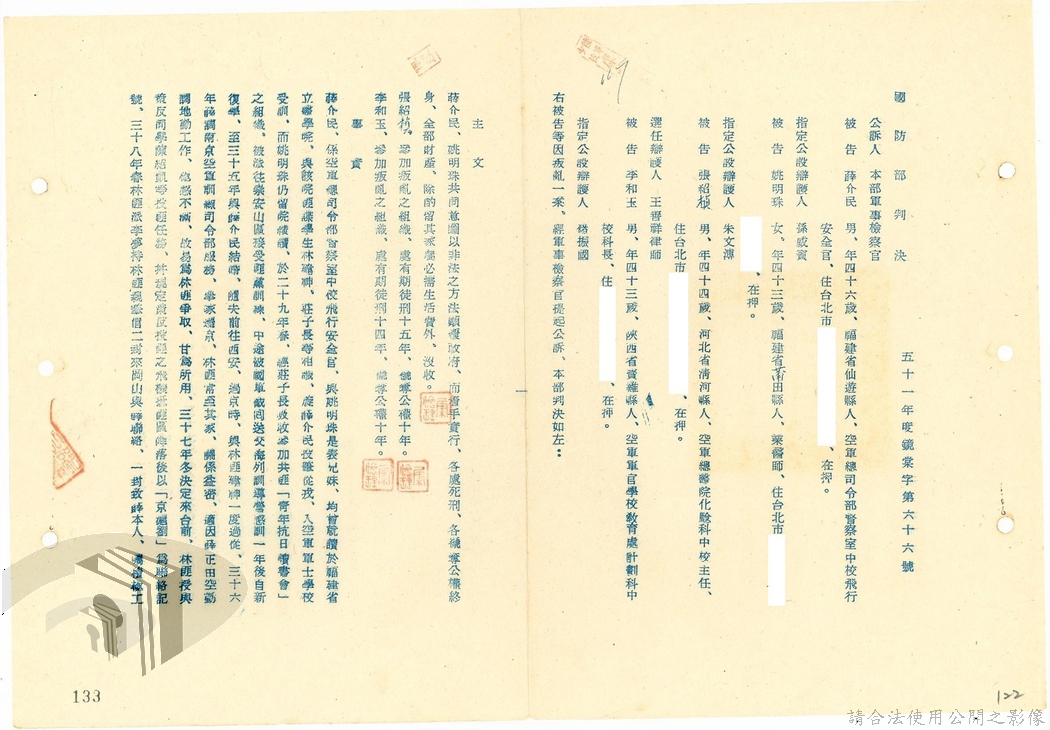 國防部判決
五十一年度鏡棠字第六十六號
公訴人 本部軍事檢察官
被告 薛介民 男、年四十六歲、福建省仙遊縣人、空軍總司令部督察室中校飛行
安全官、住台北市 、在押。
指定公設辯護人 孫威賓
被告 姚明珠 女、年四十三歲、福建省莆田縣人、藥劑師、住台北市
、在押。
指定公設辯護人 朱文溥
被告 張紹楨 男、年四十四歲、河北省清河縣人、空軍總醫院化驗科中校主任、
住台北市 、在押。
選任辯護人 王善祥律師
被告 李和玉 男、年四十三歲、陝西省 縣人、空軍軍官學校教育處計劃科中
校科長、住 、在押。
指定公設辯護人 振國
右被告等因叛亂一案、經軍事檢察官提起公訴、本部判決如左：
主文
薛介民、姚明珠共同意圖以非法之方法顛覆政府、而着手實行、各處死刑、各褫奪公權終
身、全部財產、除酌留其家屬必需生活費外、沒收。
張紹楨、參加叛亂之組織、處有期徒刑十五年、褫奪公權十年。
李和玉、參加叛亂之組織、處有期徒刑十四年、褫奪公權十年。
事實
薛介民、係空軍總司令部督察室中校飛行安全官、與姚明珠是表兄妹、均曾就讀於福建省
立 學院、與該院匪諜學生林 神、莊子長等相識、旋薛介民投筆從戎、入空軍軍士學校
受訓、而姚明珠仍留院續讀、於二十九年春、經莊子長吸收參加共匪「青年抗日讀書會」
之組織、被派往崇安山區接受匪黨訓練、中途被國軍截回送交海列訓導營感訓一年後自新
復學、至三十五年與薛介民結婚、隨夫前往西安、過京時、與林匪 神一度過從、三十六
年薛調南京空軍訓練司令部服務、舉家遷京、林匪常至其家、關係益密、適因薛正由空勤
調地勤工作、 不滿、故易為林匪爭取、甘為所用、三十七年冬決定來台前、林匪授與
策反同學陳紹凱等投匪任務、并規定策反投匪之飛機於匪區降落後以「京滬劉」為聯絡記
號、三十八年春林匪派李夢持林匪親筆信二封來岡山與薛聯絡、一封致薛本人、囑積極工
133
122
請合法使用公開之影像